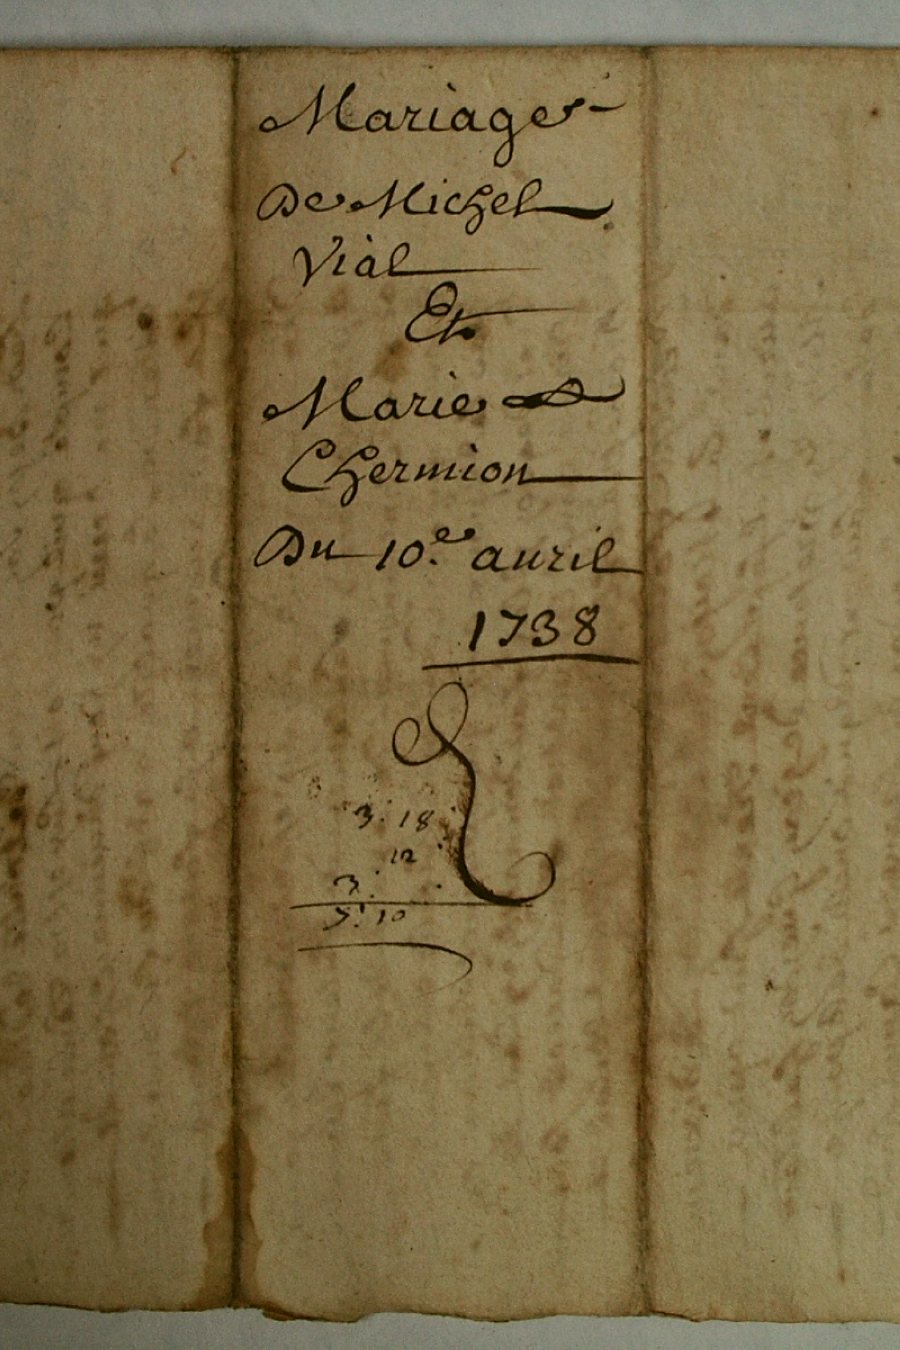 Mariage
De Michel
Vial
Et
Marie
Chermion
Du 10.e auril
1738
3: 18
12
3:
7: 10